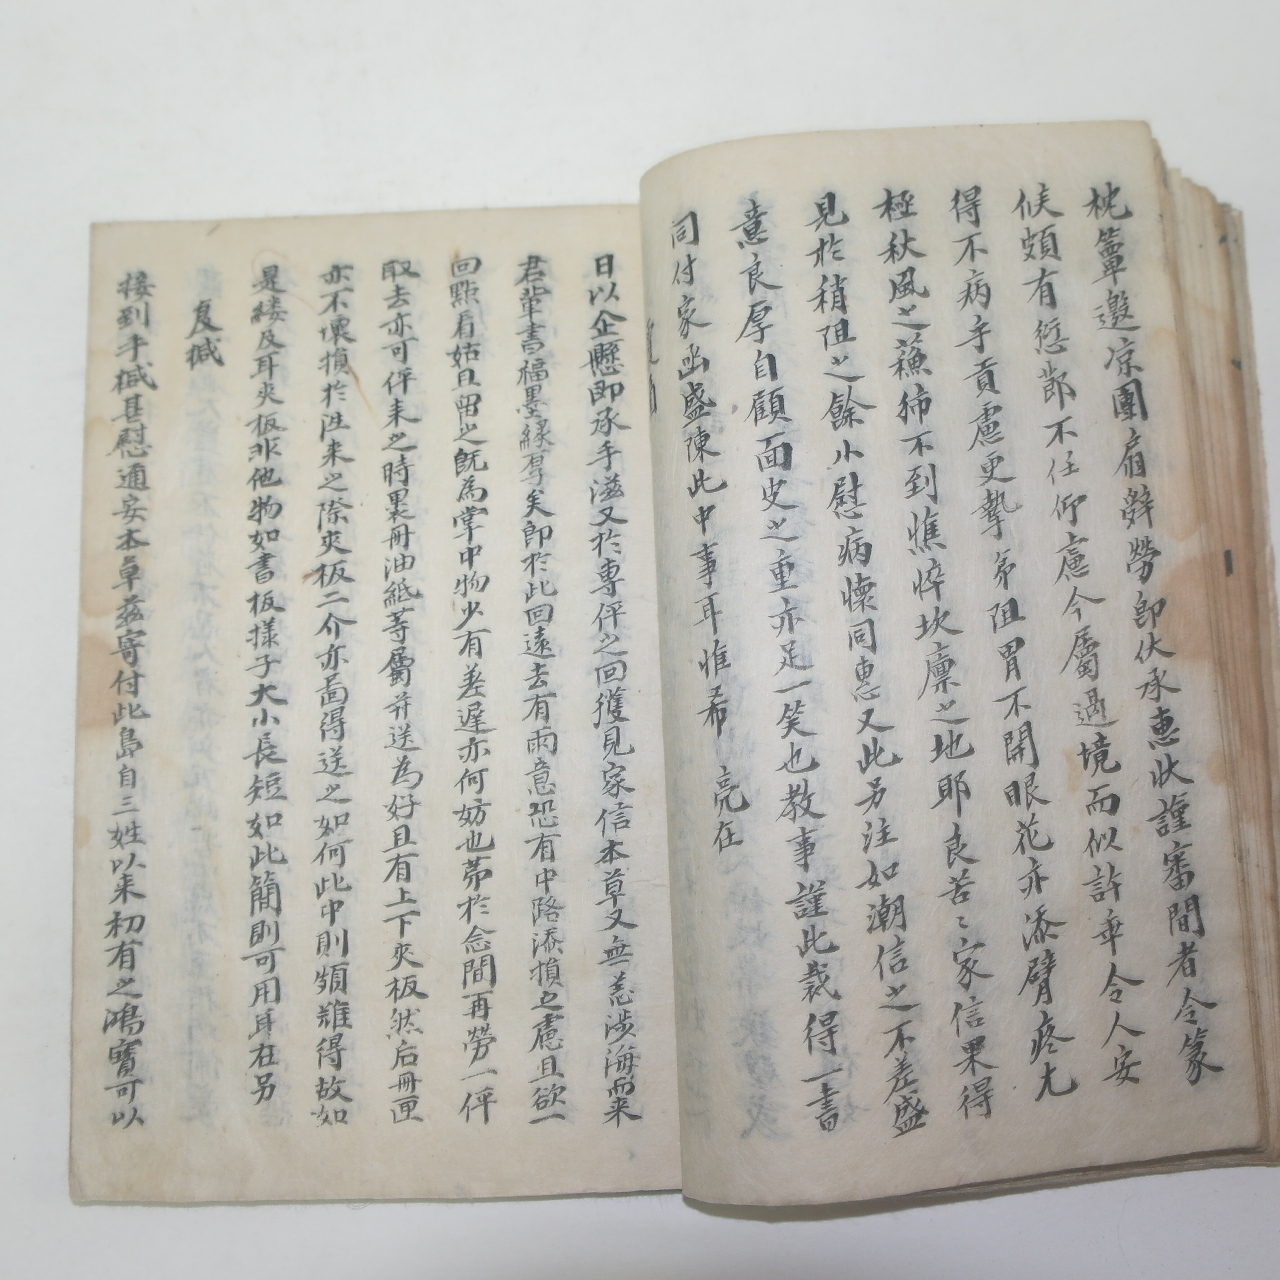 枕簟邀凉團扇辭勞即伏承惠狀謹審間者令篆
候頗有愆節不任仰慮今屬過境而似許率令人安
得不病手貢慮更摯弟阻胃不開眼花亦添臂疼尤
極秋風之蘓肺不到憔悴坎廪之地耶良苦〻家信果得
見於稍阻之餘小慰病懷同惠又此另注如潮信之不差盛
意良厚自顧面皮之重亦足一笑也教事謹此裁得一書
同付家凾盛陳此中事耳惟希 亮在
日以企懸即承手滋又於專伻之回獲見家信本草又無恙涉海而来
君輩書福墨緣厚矣即於此回遠去有雨意恐有中路添損之慮且欲一
回點看姑且留之旣為掌中物少有差遲亦何妨也苐於念間再勞一伻
取去亦可伻来之時裹冊油紙等屬并送為好且有上下夾板然后冊匣
亦不懷損於徃来之際夾板二介亦啚得送之如何此中則頗難得故如
是縷及耳夾板非他物如書板樣子大小長短如此簡則可用耳在另
友椷
接到手椷甚慰適安本草茲寄付此島自三姓以来初有之鴻寶可以